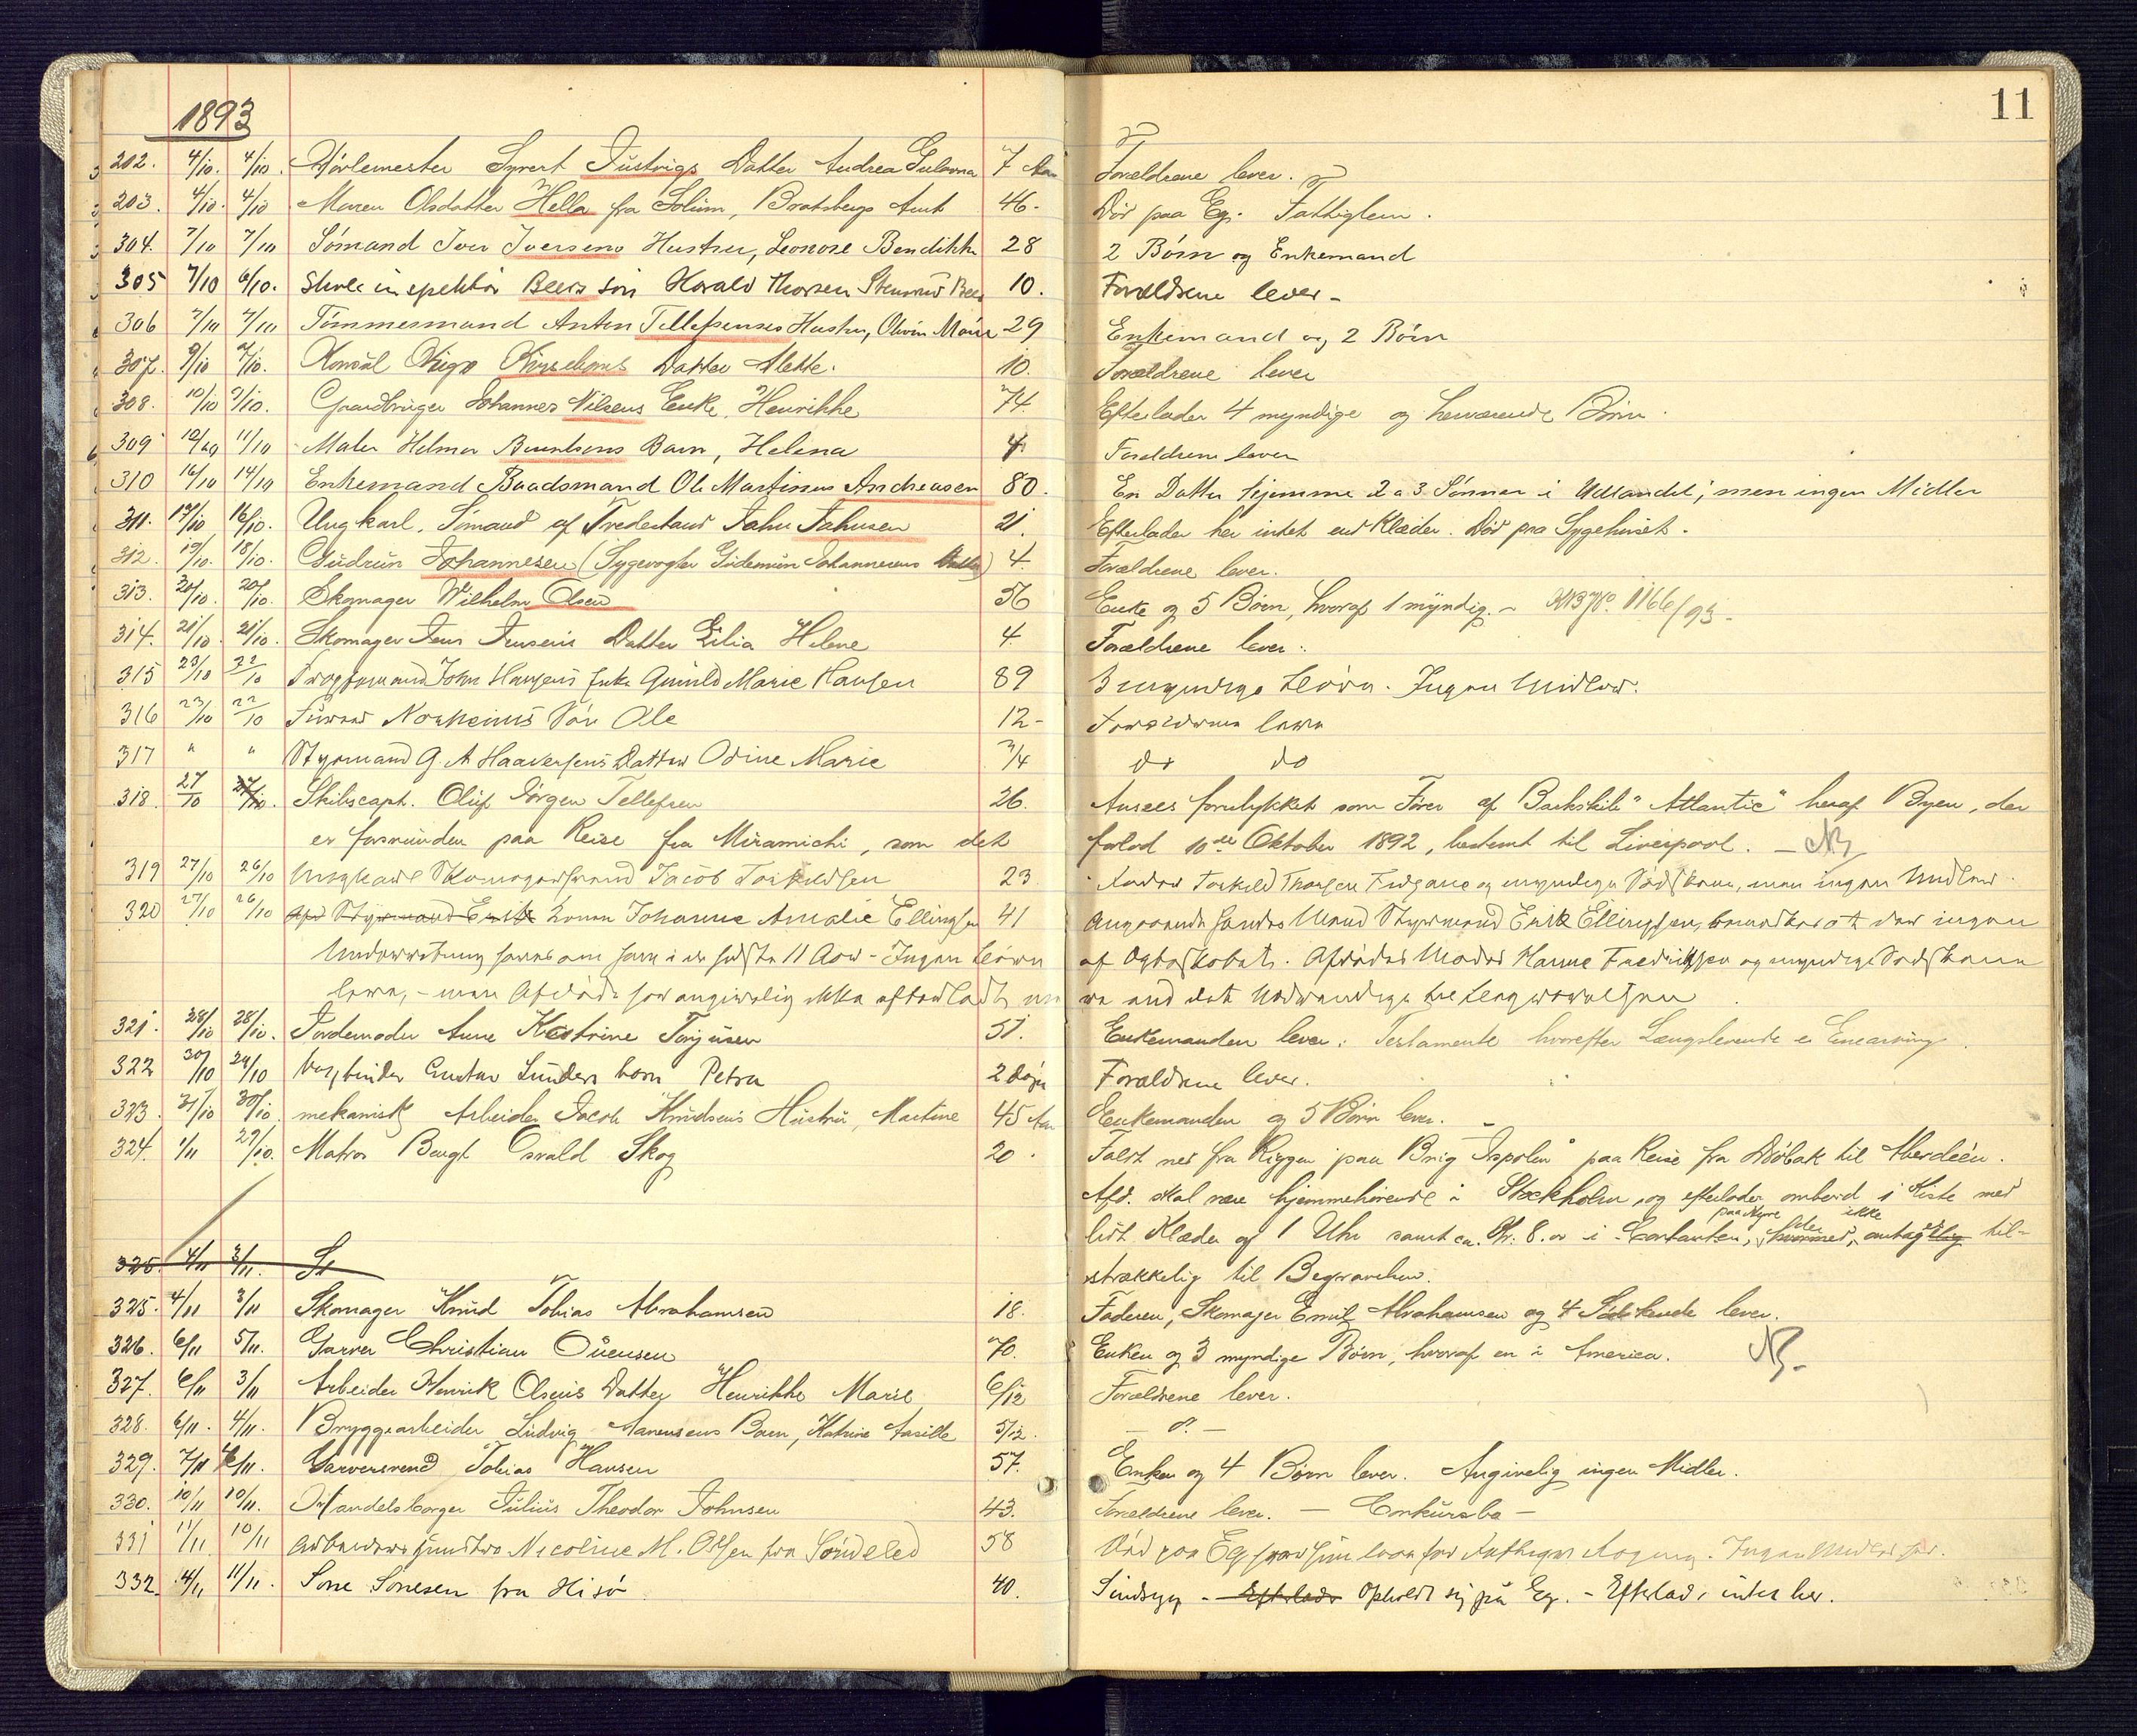 11
1893
202. 4/10. 4/10. Syvert Justvigs Datter Andrea 7 Aar Forældrene lever.
203. 4/10. 4/10 Maren Olsdatter Hella fra Solum, Bratsbergs Amt 46. Død paa Eg. Fattiglem.
304. 7/10 7/10 Sømand Iver Iversens Hustru, Leonore Bendikte 28 2 Børn og Enkemand
305 7/10 6/10. Skoleinspektør Beers søn Harald Thorsen 10. Forældrene lever-
306 7/10 7/10 Tømmermand Anton Tellefsenses Hustru, Olivia Marie 29 Enkemand og 2 Børn
307. 9/10 7/10. Konsul Datter Alette. 10. Forældrene lever
308. 10/10 9/10. Gaardbruger Johannes Nilsens Enke, Henrikke 74. Efterlader 4 myndige og herværende Børn.
309 12/10 11/10 Maler Helmer Berentsens Barn, Helena 4 Forældrene lever
310 16/10 14/10 Enkemand Baadsmand Ole Martinus Andreasen 80. En Datter hjemme 2 a 3 Sønner i Udlandet; men ingen Midler
311. 17/10 16/10. Ungkarl, Sømand af Fredestrand John Johnsen 21. Efterlader her intet end Klæder. Død paa Sygehuset.
312. 19/10. 18/10. Gudrun Johannesen (Sygevogter Gudemun Johannesens Datter) 4. Forældrene lever.
313. 20/10. 20/10. Skomager Wilhelm Olsen 56 Enke og 5 Børn, hvoraf 1 myndig. - 1166/93-
314. 21/10. 21/10. Skomager Jens Jensens Datter Lilia Helene 4. Forældrene lever.
315 23/10 22/10 John Hansens Enke Gunild Marie Hansen 89 3 myndige Børn. Ingen Midler.
316 23/10 22/10 Norheims Søn Ole 12- Forældrene lever
317 " " Styrmand G. A Haaversens Datter Odine Marie 3/4 do do
318. 27/10 Skibscapt. Oluf Jørgen Tellefsen 26. Ansees forulykket som Fører af Barkskib "Atlantic" heraf Byen, der
er forsvunden paa Reise fra Miramichi, som det forlod 10de Oktober 1892, bestemt til Liverpool. - NB
319 27/10 26/10 Ungkarl Skomagersvend Jacob Torkildsen 23. Fader Torkild Thorsen og myndige Sødskene, men ingen Midler.
320 27/10 26/10 Konen Johanne Amalie Ellingsen 41 Angaaende hendes Mand Styrmand Erik Ellingsen, bemærkes at der ingen
Underretning haves om ham i de sidste 11 Aar - Ingen Børn af Ægteskabet. Afdødes Moder Hanne Fredriksen og myndige Sødskene
lever, - men Afdøde har angivelig ikke efterladt end det Nødvendige til Begravelsen.
321. 28/10 28/10. Jordemoder Anne Katrine Torjusen 51. Enkemanden lever. Testamente hvorefter Længstlevende er Enearving.
322 30/10 29/10 Bogbinder Gustav Lunders barn Petra 2 dage Forældrene lever.
323. 31/10 30/10. mekanisk Arbeider Jacob Knudsens Hustru, Martine 45 Aar Enkemanden og 5 Børn lever. -
324. 1/11 29/10. Matros Bengt Osvald Skog 20. Faldt ned fra Riggen paa Brig "Ispolen" paa Reise fra Drøbak til Aberdeen.
Afd. skal være hjemmehørende i Stockholm, og efterlader ombord 1 Kiste med
paa Hyre ikke
lidt Klæder og 1 Uhr samt ca. Kr. 8. i Contanter, til-
strækkelig til Begravelsen.
325. 4/11 3/11. Sk
325. 4/11 3/11 Skomager Knud Tobias Abrahamsen 18. Faderen, Skomager Emil Abrahamsen og 4 Sødskende lever.
326. 6/11 5/11. Garver Christian Ouensen 70. Enken og 3 myndige Børn, hvoraf en i America. NB-
327. 6/11 3/11 Arbeider Henrik Olsens Datter Henrikke Marie 6/12 Forældrene lever.
328. 6/11. 4/11. Bryggearbeider Ludvig Aanensens Barn, Katrine 5/12. - do -
329. 7/11 6/11. Garversvend Tobias Hansen 57. Enken og 4 Børn lever. Angivelig ingen Midler.
330. 10/11 10/11. Handelsborger Julius Theodor Johnsen 43. Forældrene lever. - Concursbo -
331 11/11. 10/11 Arbeiders Hustru Nicoline M. Olsen fra Søndeled 58 Død paa Eg Ingen Midler her.
332. 14/11 11/11. Sone Sonesen fra Hisø 40. Sindsyg - Efterlader Opholdt sig på Eg. - Efterlad. intet her.